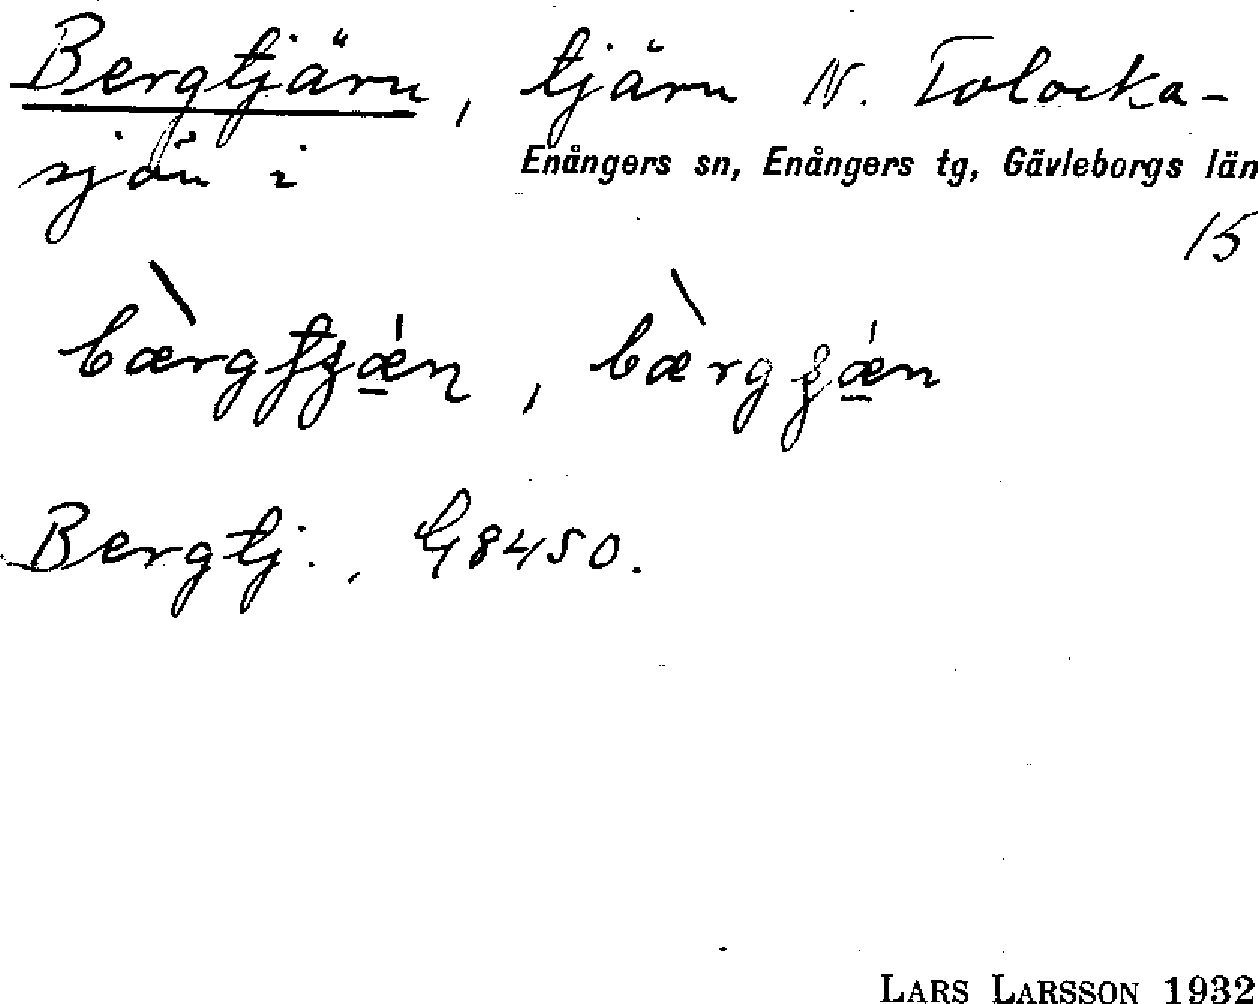 Bergtjärn, tjärn N. Tolocka-
sjön i Enångers sn, Enångers tg, Gävleborgs län
15
Bergtj., G8450.
LARS LARSSON 1932